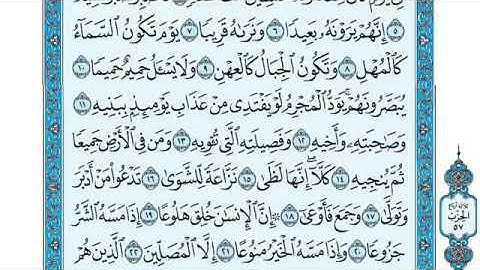 ٥ إِنَّهُمْ يَرَوْنَهُۥ بَعِيدًا ٦ وَنَرَىٰهُ قَرِيبًا ٧ يَوْمَ تَكُونُ ٱلسَّمَآءُ
كَٱلْمُهْلِ ٨ وَتَكُونُ ٱلْجِبَالُ كَٱلْعِهْنِ ٩ وَلَا يَسْـَٔلُ حَمِيمٌ حَمِيمًا ١٠
يُبَصَّرُونَهُمْ ۚ يَوَدُّ ٱلْمُجْرِمُ لَوْ يَفْتَدِى مِنْ عَذَابِ يَوْمِئِذٍۭ بِبَنِيهِ ١١
وَصَٰحِبَتِهِۦ وَأَخِيهِ ١٢ وَفَصِيلَتِهِ ٱلَّتِى تُـْٔوِيهِ ١٣ وَمَن فِى ٱلْأَرْضِ جَمِيعًا
ثُمَّ يُنجِيهِ ١٤ كَلَّآ ۖ إِنَّهَا لَظَىٰ ١٥ نَزَّاعَةً لِّلشَّوَىٰ ١٦ تَدْعُوا۟ مَنْ أَدْبَرَ
وَتَوَلَّىٰ ١٧ وَجَمَعَ فَأَوْعَىٰٓ ١٨ ۞ إِنَّ ٱلْإِنسَٰنَ خُلِقَ هَلُوعًا ١٩ إِذَا مَسَّهُ ٱلشَّرُّ
جَزُوعًا ٢٠ وَإِذَا مَسَّهُ ٱلْخَيْرُ مَنُوعًا ٢١ إِلَّا ٱلْمُصَلِّينَ ٢٢ ٱلَّذِينَ هُمْ
الحزب
٥٧